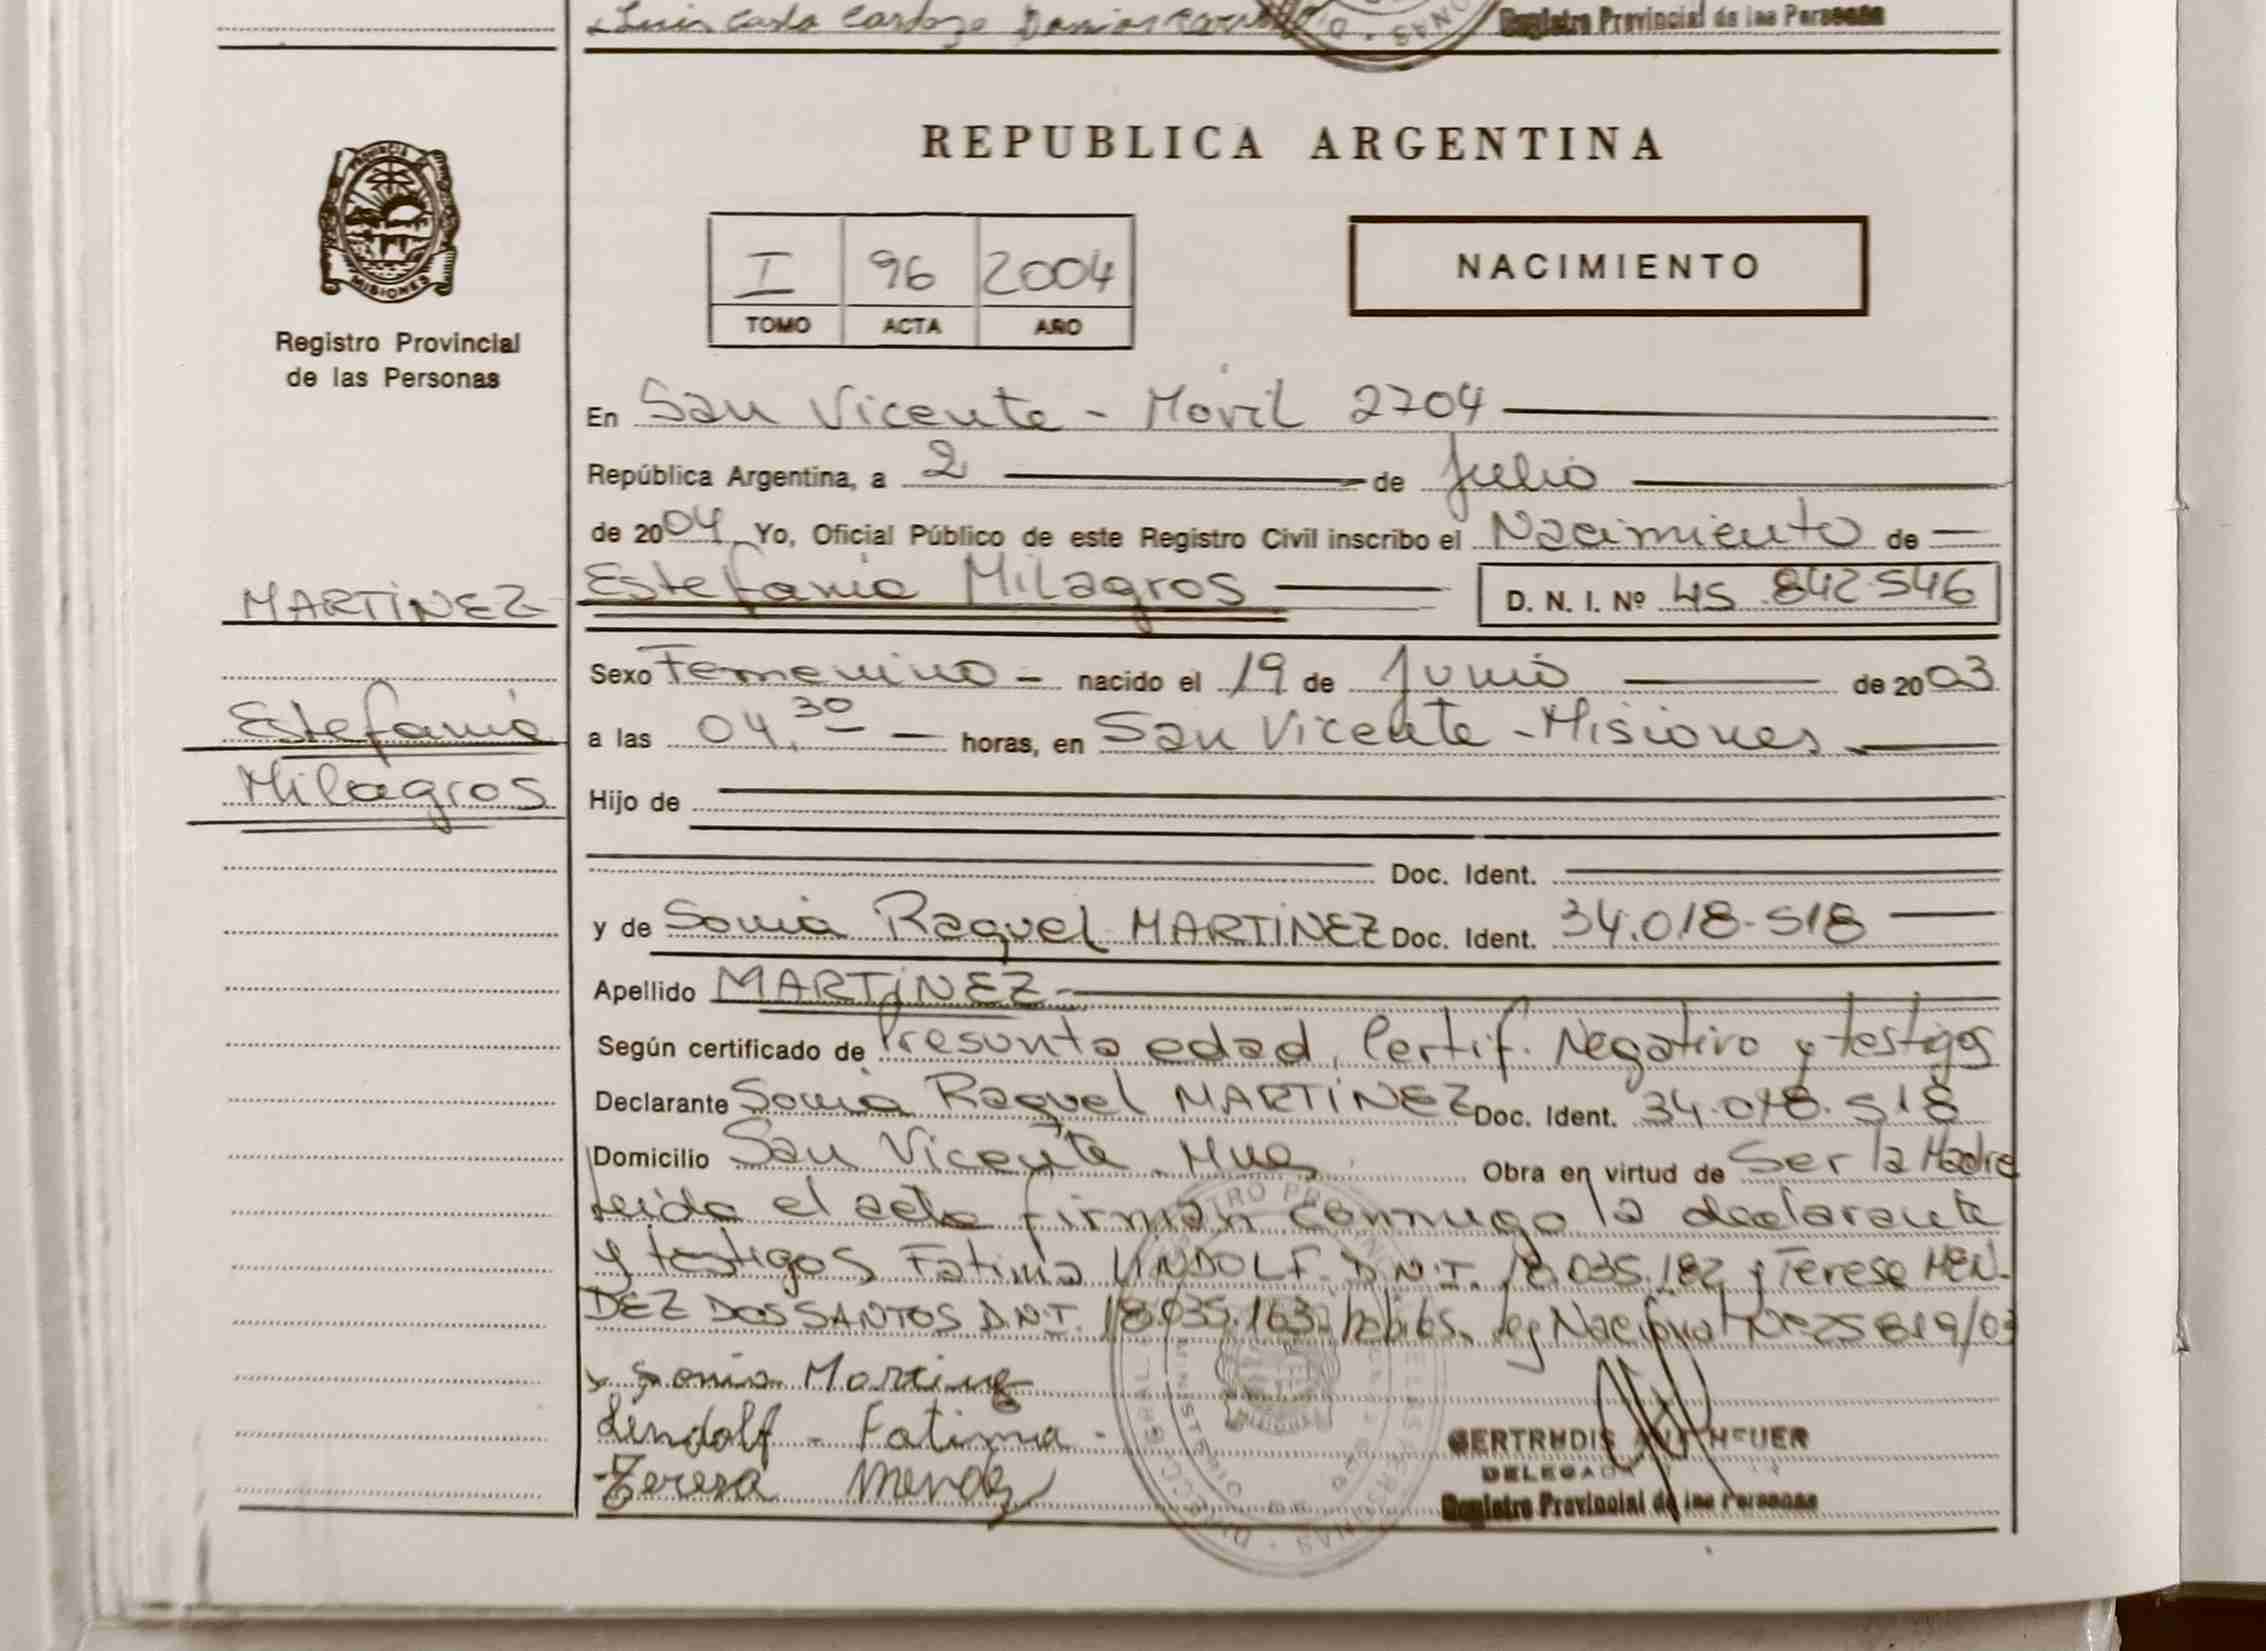 Luis Carlo Cardozo
Registro Provincial de las Personas
PROVINCIA DE
MISIONES
Registro Provincial
de las Personas
REPUBLICA ARGENTINA
I 96 2004
TOMO ACTA AÑO
NACIMIENTO
En San Vicente - Móvil 2704
República Argentina, a 2 de Julio
de 2004 Yo, Oficial Público de este Registro Civil inscribo el Nacimiento de
MARTÍNEZ
Estefania Milagros
D. N. I. Nº 45.842.546
Sexo Femenino - nacido el 19 de Junio de 2003
Estefania
Milagros
a las 04.30 horas, en San Vicente - Misiones
Hijo de
Doc. Ident.
y de Sonia Raquel MARTÍNEZ Doc. Ident. 34.018.518
Apellido MARTÍNEZ
Según certificado de Presunta edad, Certif. Negativo y testigos
Declarante Sonia Raquel MARTÍNEZ Doc. Ident. 34.018.518
Domicilio San Vicente Mnes. Obra en virtud de Ser la Madre
leida el acta firman conmigo la declarante
y testigos Fatima LINDOLF D.N.I. 18.035.182 y Teresa MEN-
DEZ DOS SANTOS D.N.I. 18.035.163 habiles. Ley Nacional Nº 25819/03
Sonia Martinez
Lindolf - Fatima
Teresa Mendez
GERTRUDIS
DELEGADA
Registro Provincial de las Personas